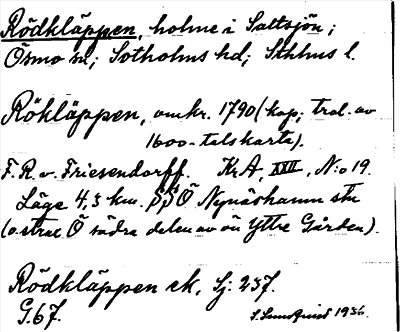 Rödkläppen, holme i Saltsjön;
Ösmo sn; Sotholms hd; Sthlms l.
Rökläppen, omkr. 1790 (kop; trol. av
1600-talskarta).
F. R. v. Friesendorff. KrA, XXII, No 19.
Läge 4,3 km. SSÖ Nynäshamn stn
(ostrac Ö södra delen av ön Yttre Gården).
Rödkläppen ek, Sj: 237.
G. 67. S. Sundquist 1936.